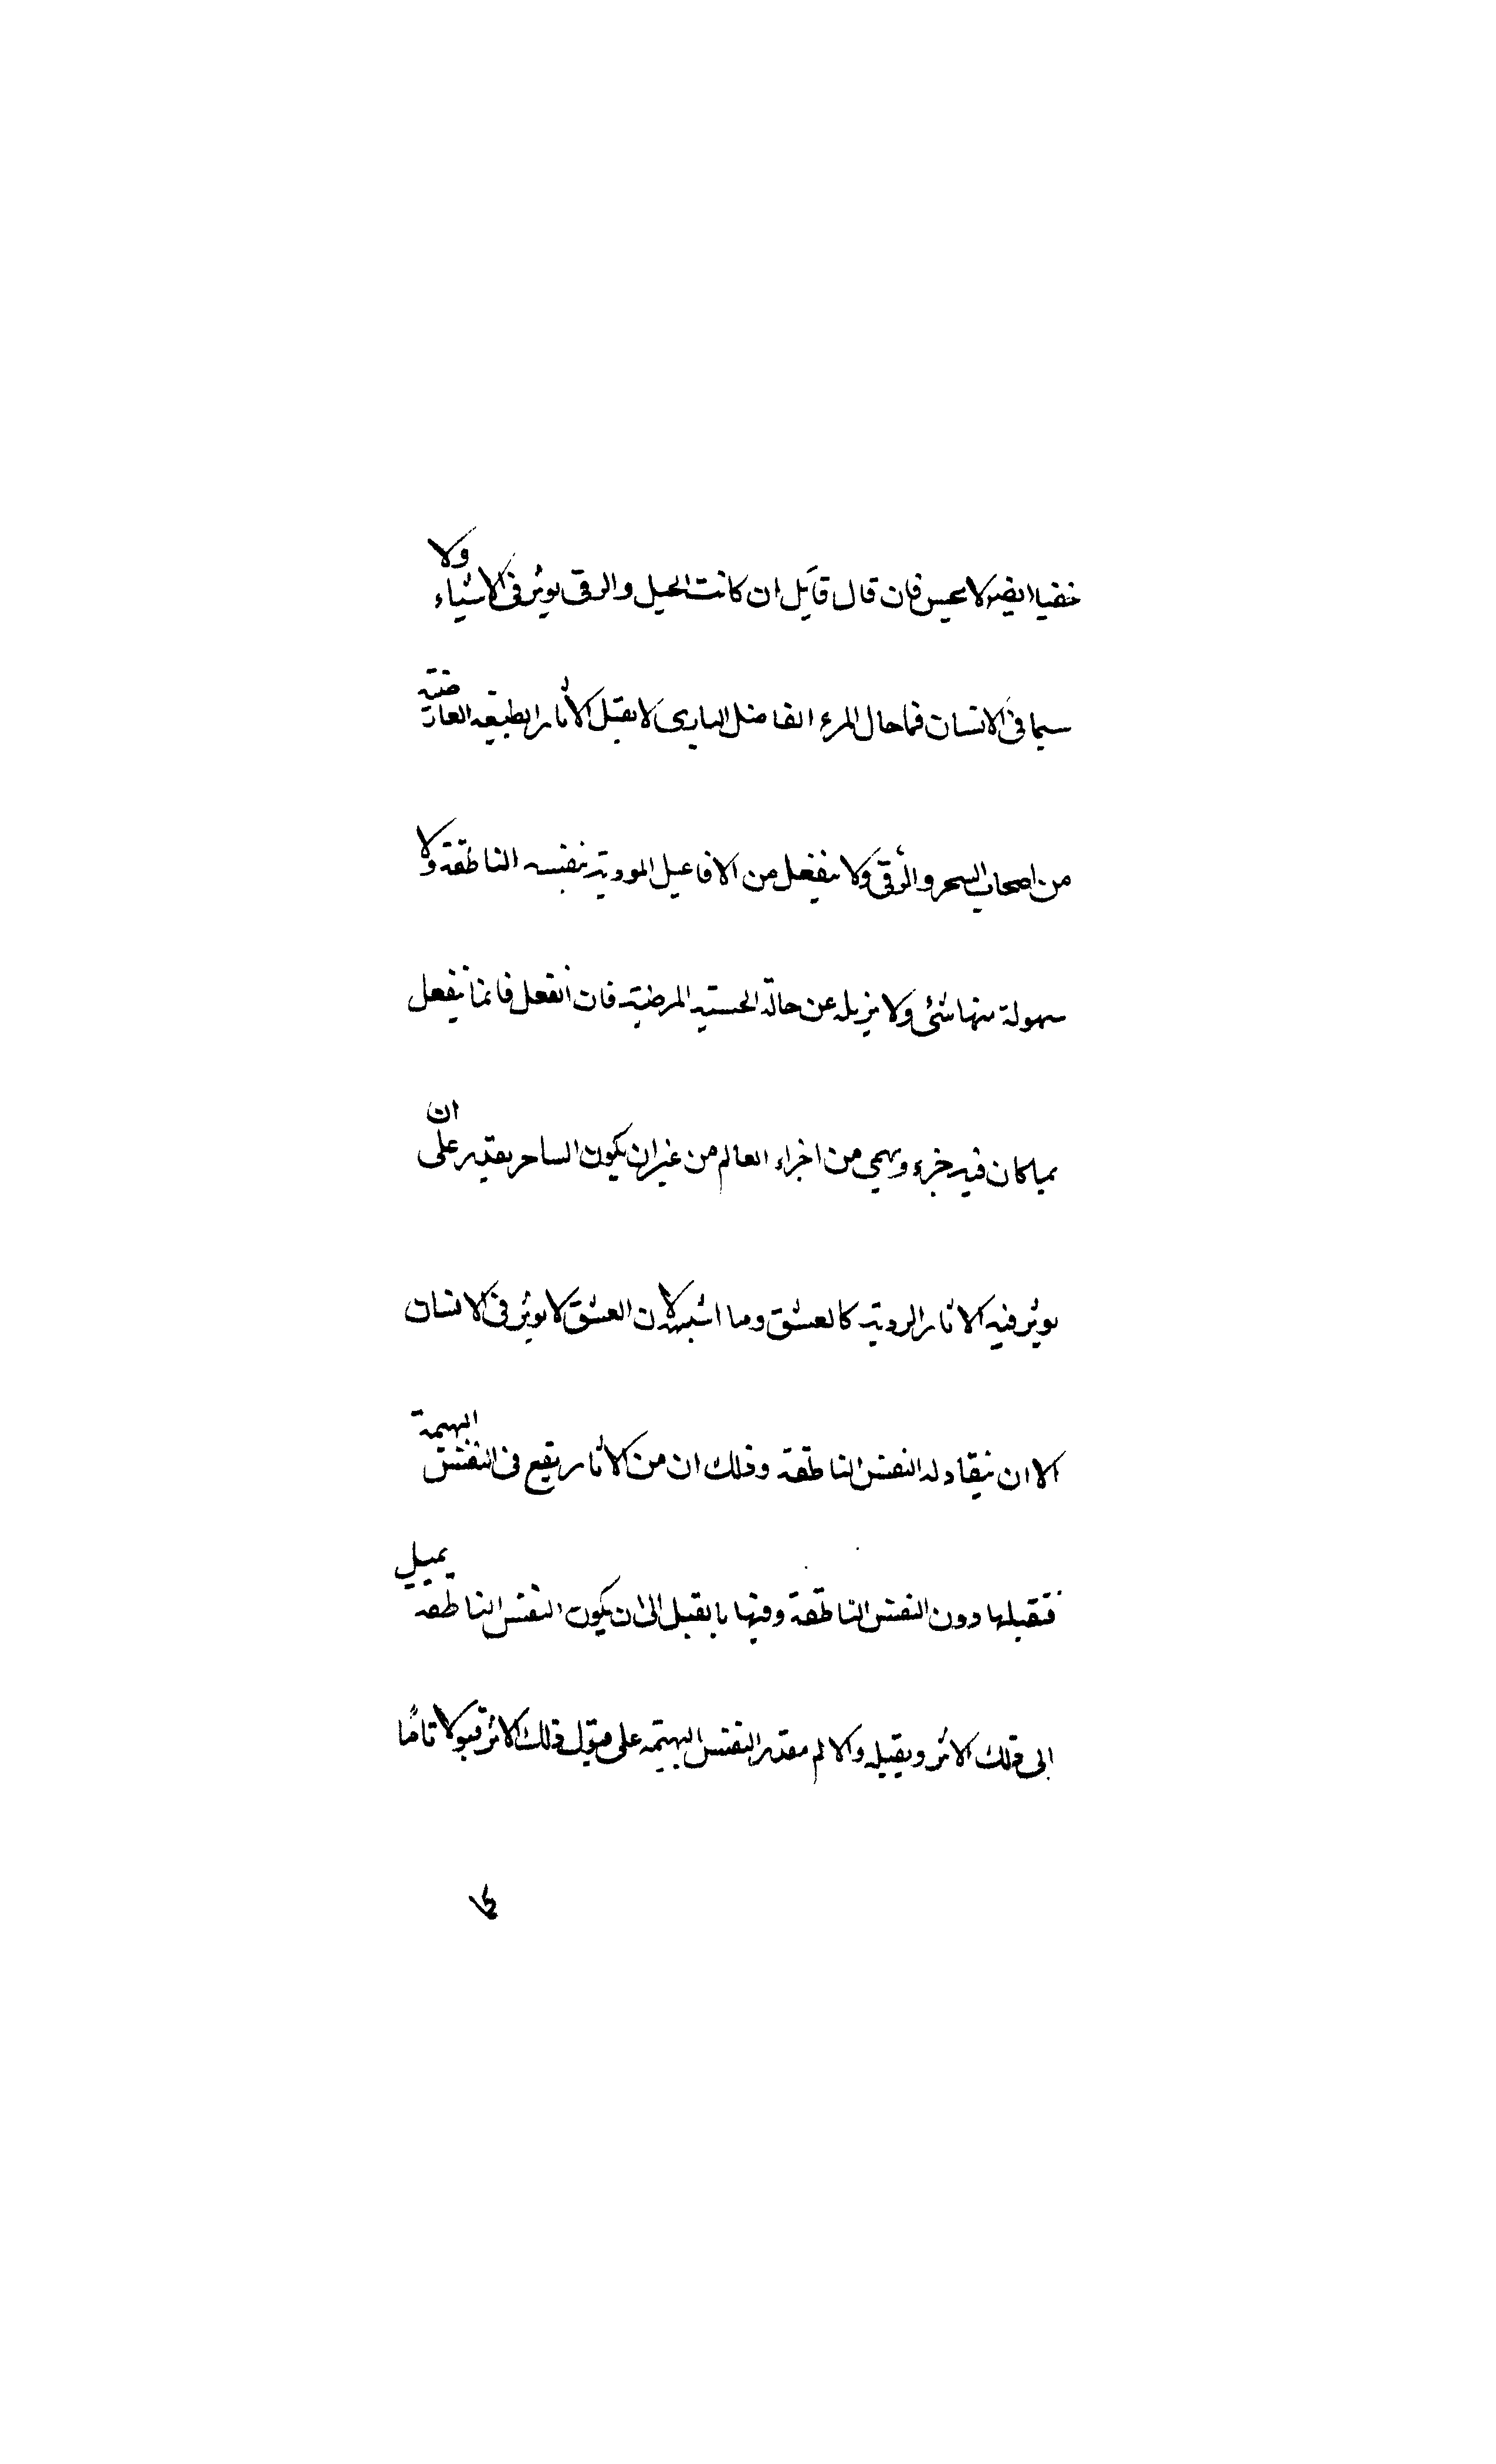 خفيا ايضا لا يحس فان قال قآيل ان كانت الحيل والرقى يوثر فى الاشياء ولا
سيما فى الانسان فما حال المرء الفاضل البارى لا يقبل الاثار الطبيعيه العارضية
من اصحاب السحر والرقى ولا ينفعل من الافاعيل الموديه بنفسه الناطقة ولا
سهولة منها شئى ولا يزيله عن حاله الحسنيه المرضيه فان انفعل فانما ينفعل
بما كان فيه جزء وهمى من اجزاء العالم من غير ان يكون الساحر يقدر على ان
يوثر فيه الاثار الرديه كالعشق وما اشبهه لان العشق لا يوثر فى الانسان
الا ان ينقاد له النفس الناطقة وذلك ان من الاثار يقع فى النفس البهيمة
فتقبلها دون النفس الناطقة وفيها ما يقبل الى ان يكون النفس الناطقه يميل
الى ذلك الاثر ويقبله والا لم يقدر النفس البهيمة على قبول ذلك الاثر قبولا تاما